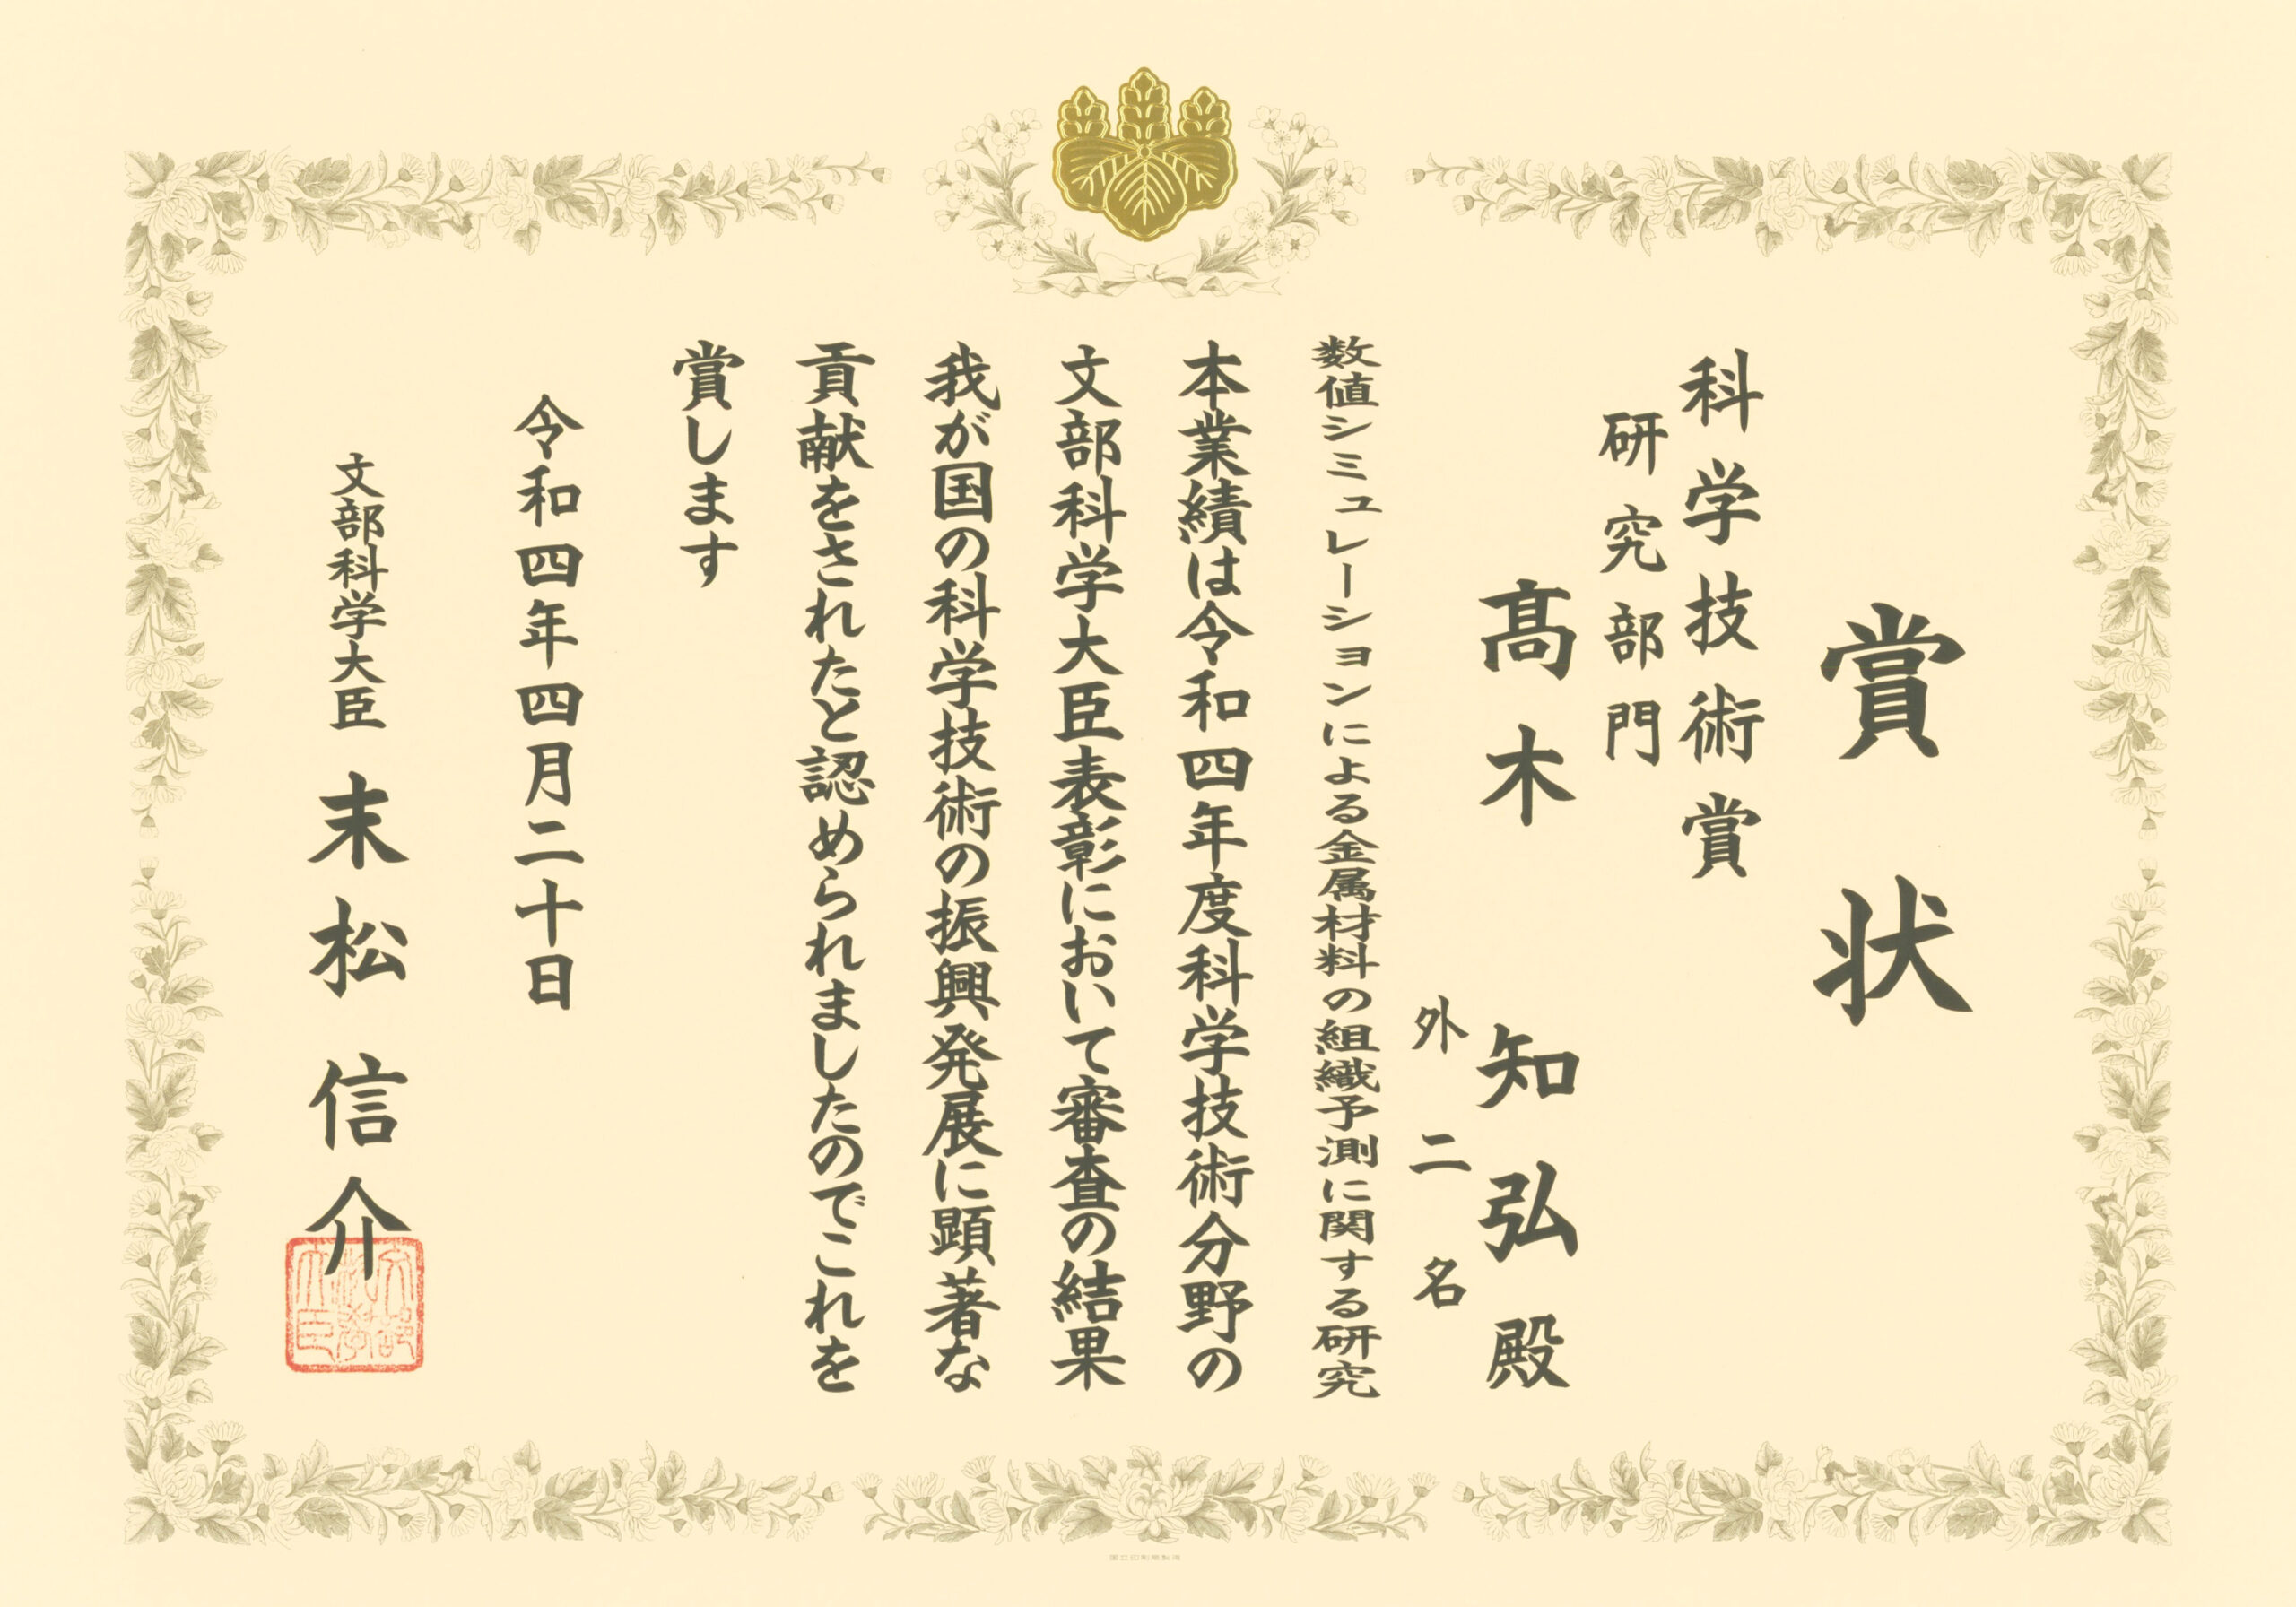 賞状
科学技術賞
研究部門
髙木 知弘 殿
外二名
数値シミュレーションによる金属材料の組織予測に関する研究
本業績は令和四年度科学技術分野の
文部科学大臣表彰において審査の結果
我が国の科学技術の振興発展に顕著な
貢献をされたと認められましたのでこれを
賞します
令和四年四月二十日
文部科学大臣 末松信介